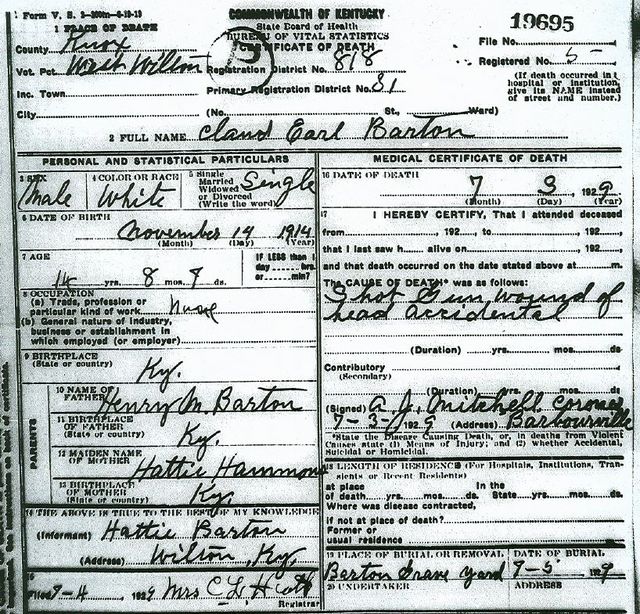 Form V. S. 2-200m-6-19-19
1 PLACE OF DEATH
County Knox
Vot. Pct West Wilton
Inc. Town
City
COMMONWEALTH OF KENTUCKY
State Board of Health
BUREAU OF VITAL STATISTICS
CERTIFICATE OF DEATH
Registration District No. 818
Primary Registration District No. 81
(No. St., Ward)
19695
File No.
Registered No. 5-
(If death occurred in a
hospital or institution,
give its NAME instead
of street and number.)
2 FULL NAME Claud Earl Barton
PERSONAL AND STATISTICAL PARTICULARS
3 SEX Male
4 COLOR OR RACE White
5 Single Married Widowed or Divorced (Write the word) Single
6 DATE OF BIRTH
November 14 1914
(Month) (Day) (Year)
7 AGE
14 yrs. 8 mos. ds.
IF LESS than 1
day hrs.
or min?
8 OCCUPATION
(a) Trade, profession or
particular kind of work
(b) General nature of industry,
business or establishment in
which employed (or employer)
9 BIRTHPLACE
(State or country) Ky.
PARENTS
10 NAME OF
FATHER Henry M. Barton
11 BIRTHPLACE
OF FATHER
(State or country) Ky.
12 MAIDEN NAME
OF MOTHER Hattie Hammons
13 BIRTHPLACE
OF MOTHER
(State or country) Ky.
14 THE ABOVE IS TRUE TO THE BEST OF MY KNOWLEDGE
(Informant) Hattie Barton
(Address) Wilton, Ky.
15
Filed 7-4 1929 Mrs C L
Registrar
MEDICAL CERTIFICATE OF DEATH
16 DATE OF DEATH
7 3, 1929
(Month) (Day) (Year)
17 I HEREBY CERTIFY, That I attended deceased
from , 192 to , 192
that I last saw h alive on , 192
and that death occurred on the date stated above at m.
The CAUSE OF DEATH* was as follows:
Shot Gun wound of
head accidental
(Duration) yrs. mos. ds
Contributory
(Secondary)
(Duration) yrs. mos. ds
(Signed) A. J. Mitchell Coroner
7-3- 1929 (Address) Barbourville
*State the Disease Causing Death, or, in deaths from Violent
Causes state (1) Means of Injury; and (2) whether Accidental,
Suicidal or Homicidal.
18 LENGTH OF RESIDENCE (For Hospitals, Institutions, Tran-
sients or Recent Residents)
at place In the
of death yrs. mos. ds. State yrs. mos. ds.
Where was disease contracted,
if not at place of death?
Former or
usual residence
19 PLACE OF BURIAL OR REMOVAL
Barton Grave Yard
DATE OF BURIAL
7-5- 1929
20 UNDERTAKER
ADDRESS